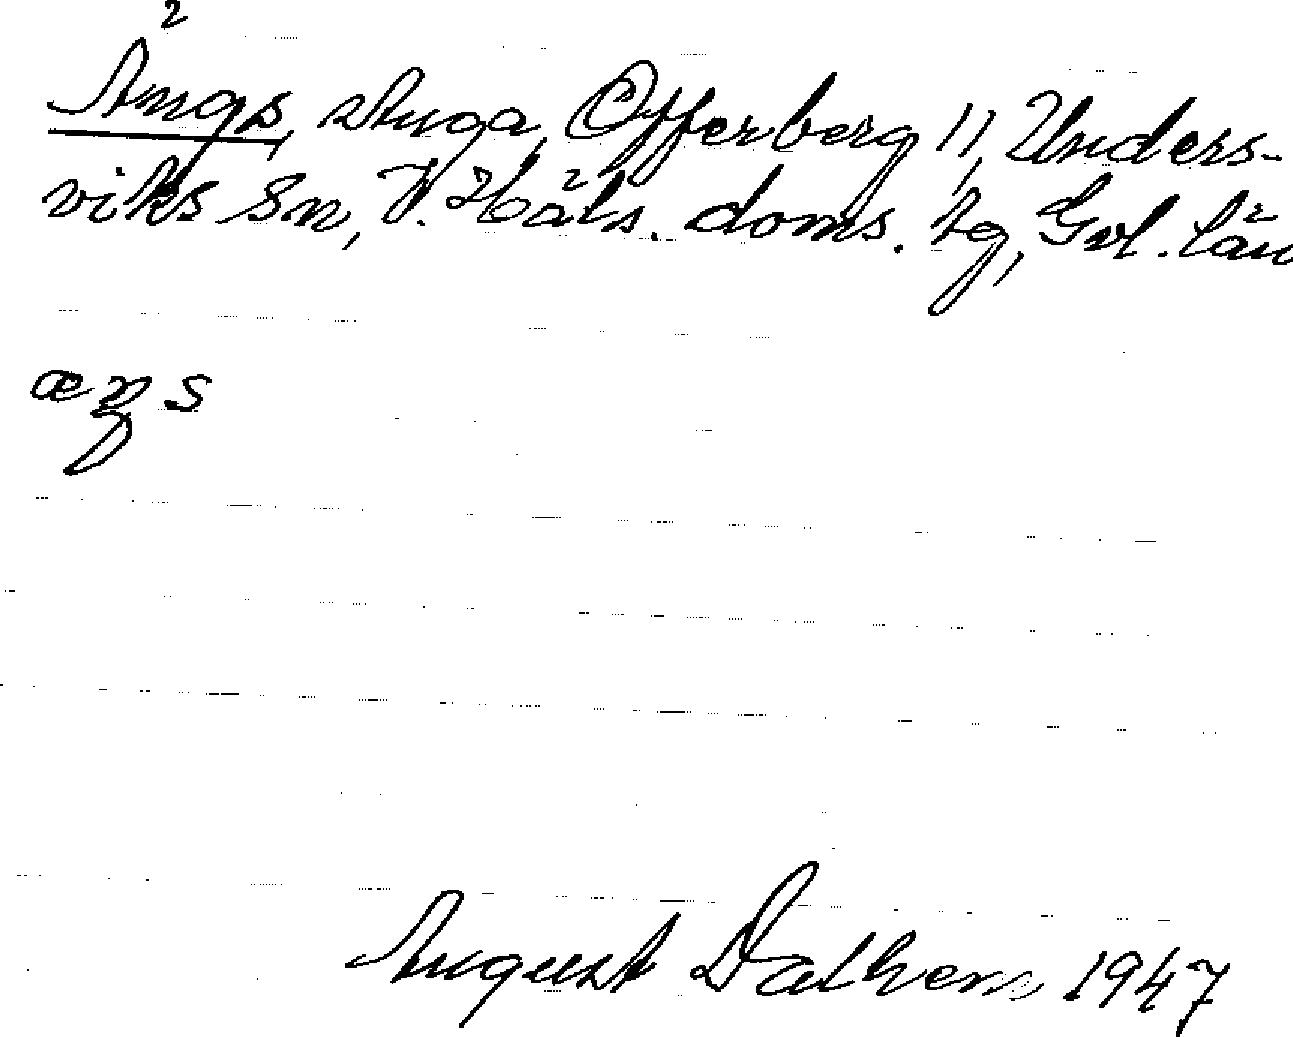 Ängs, stuga, Offerberg 11, Unders-
viks sn, V. Häls. doms. tg, Gvl. län
æŋs
August Dathern 1947